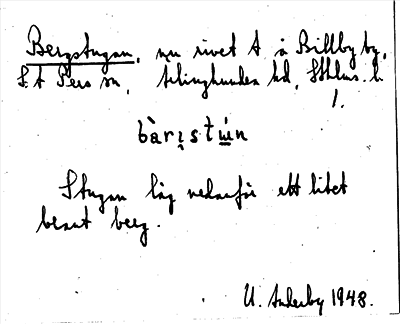 Bergstugan, nu rivet t å Billby by,
S:t Pers sn, Seminghundra hd, Sthlms l.
1.
bàrįstú̱n
Stugan låg nedanför ett litet
brant berg.
U. Anderby 1948.